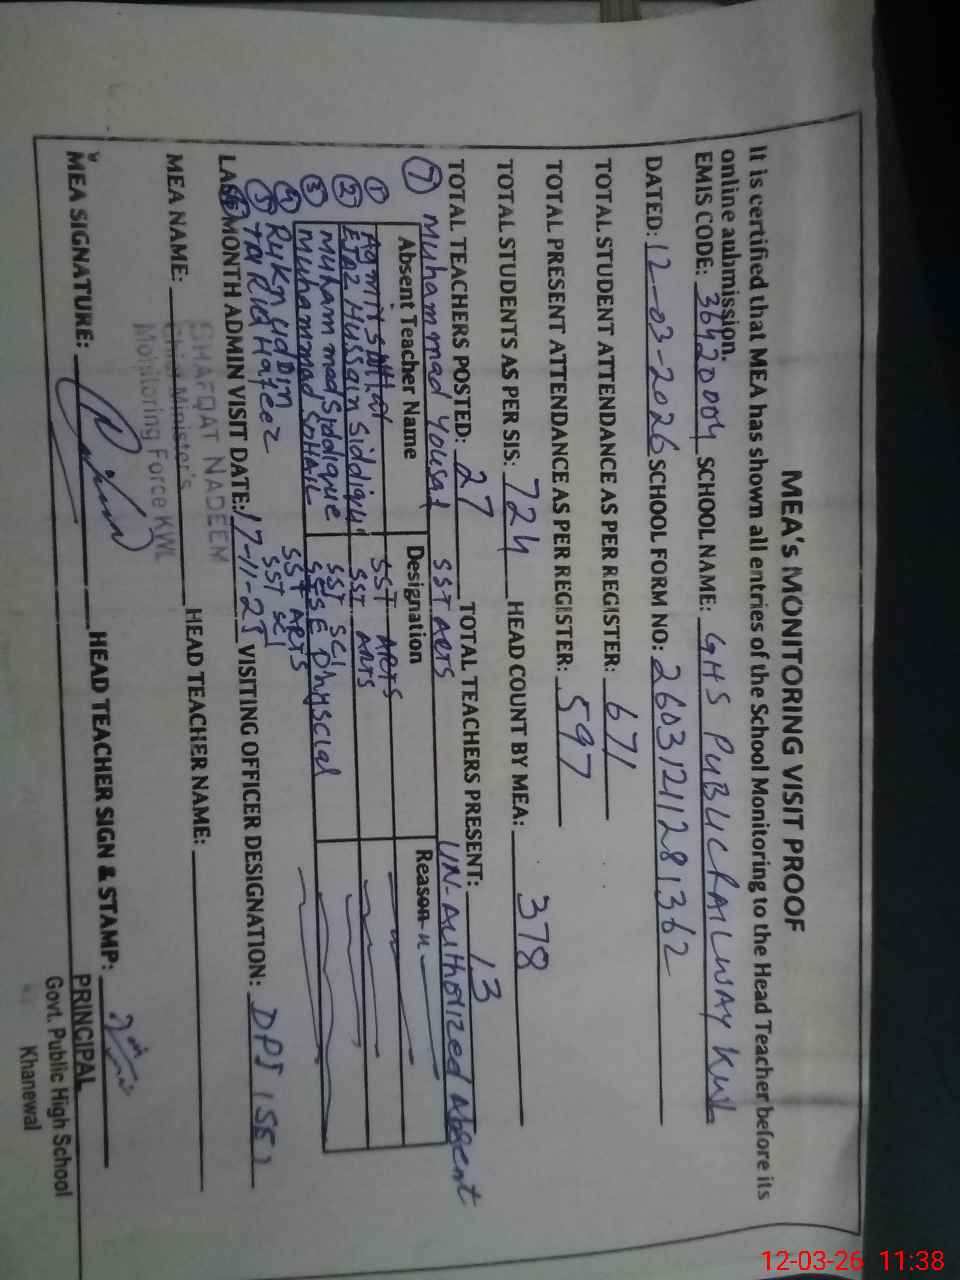 MEA's MONITORING VISIT PROOF
It is certified that MEA has shown all entries of the School Monitoring to the Head Teacher before its
online aubmission.
EMIS CODE: 36420004 SCHOOL NAME: GHS PUBLIC RAILWAY KWL
DATED: 12-03-2026 SCHOOL FORM NO: 26031211281362
TOTAL STUDENT ATTENDANCE AS PER REGISTER: 671
TOTAL PRESENT ATTENDANCE AS PER REGISTER: 597
TOTAL STUDENTS AS PER SIS: 724 HEAD COUNT BY MEA: 378
TOTAL TEACHERS POSTED: 27 TOTAL TEACHERS PRESENT: 13
7 Muhammad Yousaf SST ARTS UN-Authorized Absent
Absent Teacher Name Designation Reason
1 SST ARTS
2 EJaz Hussain Siddiqui SST ARTS
Muhammad Siddique SST SCI
3 Muhammad SOHAIL SESE Physcial
4 Rukn ud Din SST ARTS
5 TARIQ Hafeez SST SCI
LAST MONTH ADMIN VISIT DATE: 17-11-25 VISITING OFFICER DESIGNATION: DPI (SE)
SHAFQAT NADEEM
Chief Minister's
Monitoring Force KWL
MEA NAME: HEAD TEACHER NAME:
MEA SIGNATURE: HEAD TEACHER SIGN & STAMP:
PRINCIPAL
Govt. Public High School
Khanewal
12-03-26 11:38